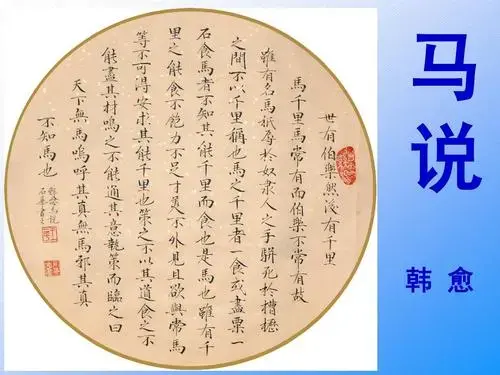 马说
韩愈
世有伯樂然後有千里
馬千里馬常有而伯樂不常有故
雖有名馬祇辱於奴隶人之手駢死於槽櫪
之間不以千里稱也馬之千里者一食或盡粟一
石食馬者不知其能千里而食也是馬也雖有千
里之能食不飽力不足才美不外見且欲與常馬
等不可得安求其能千里也策之不以其道食之不
能盡其材鳴之不能通其意執策而臨之曰
天下無馬嗚呼其真無馬邪其真
不知馬也
韓愈馬說